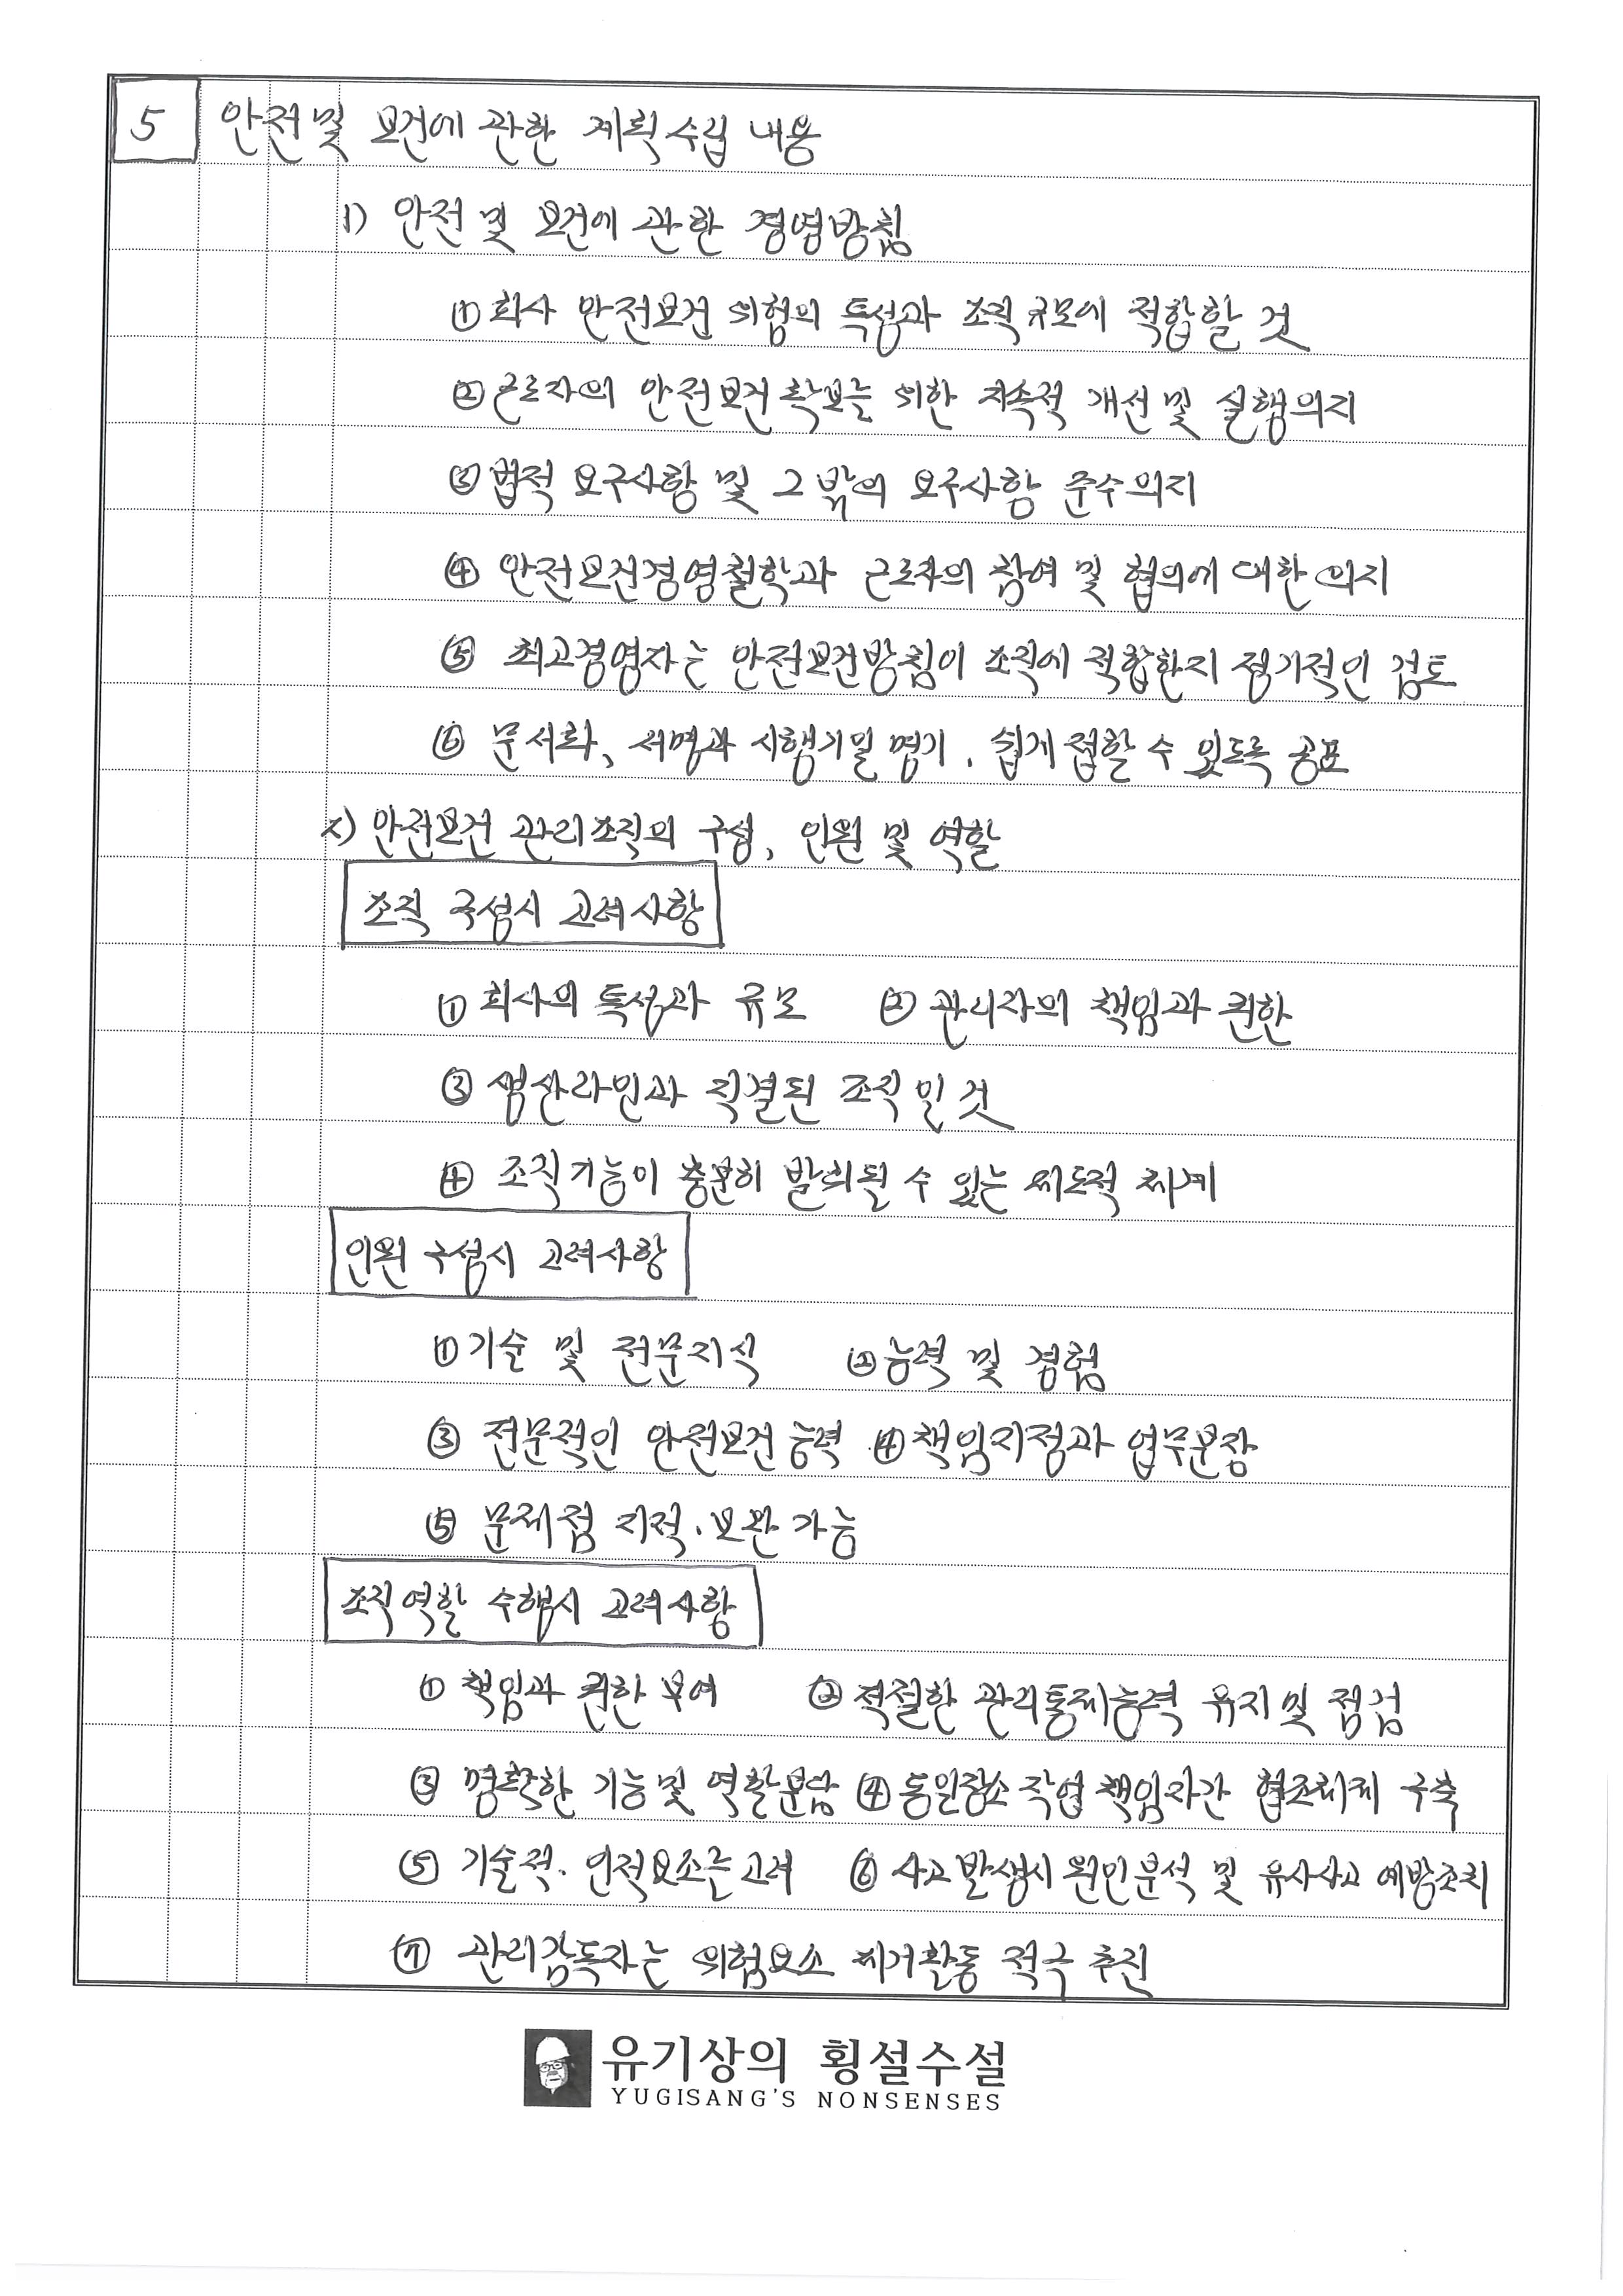 5 안전 및 보건에 관한 계획수립 내용
1) 안전 및 보건에 관한 경영방침
① 회사 안전보건 위험의 특성과 조직 규모에 적합할 것
② 근로자의 안전보건 확보를 위한 지속적 개선 및 실행의지
③ 법적 요구사항 및 그 밖의 요구사항 준수의지
④ 안전보건경영철학과 근로자의 참여 및 협의에 대한 의지
⑤ 최고경영자는 안전보건방침이 조직에 적합한지 정기적인 검토
⑥ 문서화, 서명과 시행기일 명기, 쉽게 접할 수 있도록 공표
2) 안전보건 관리조직의 구성, 인원 및 역할
조직 구성시 고려사항
① 회사의 특성과 규모 ② 관리자의 책임과 권한
③ 생산라인과 직결된 조직일 것
④ 조직기능이 충분히 발휘될 수 있는 제도적 체계
인원 구성시 고려사항
① 기술 및 전문지식 ② 능력 및 경험
③ 전문적인 안전보건 능력 ④ 책임지정과 업무분장
⑤ 문제점 지적·보완 가능
조직역할 수행시 고려사항
① 책임과 권한 부여 ② 적절한 관리통제능력 유지 및 점검
③ 명확한 기능 및 역할분담 ④ 동일장소 작업 책임자간 협조체제 구축
⑤ 기술적·인적요소를 고려 ⑥ 사고발생시 원인분석 및 유사사고 예방조치
⑦ 관리감독자는 위험요소 제거활동 적극 추진
유기상의 횡설수설
YUGISANG'S NONSENSES